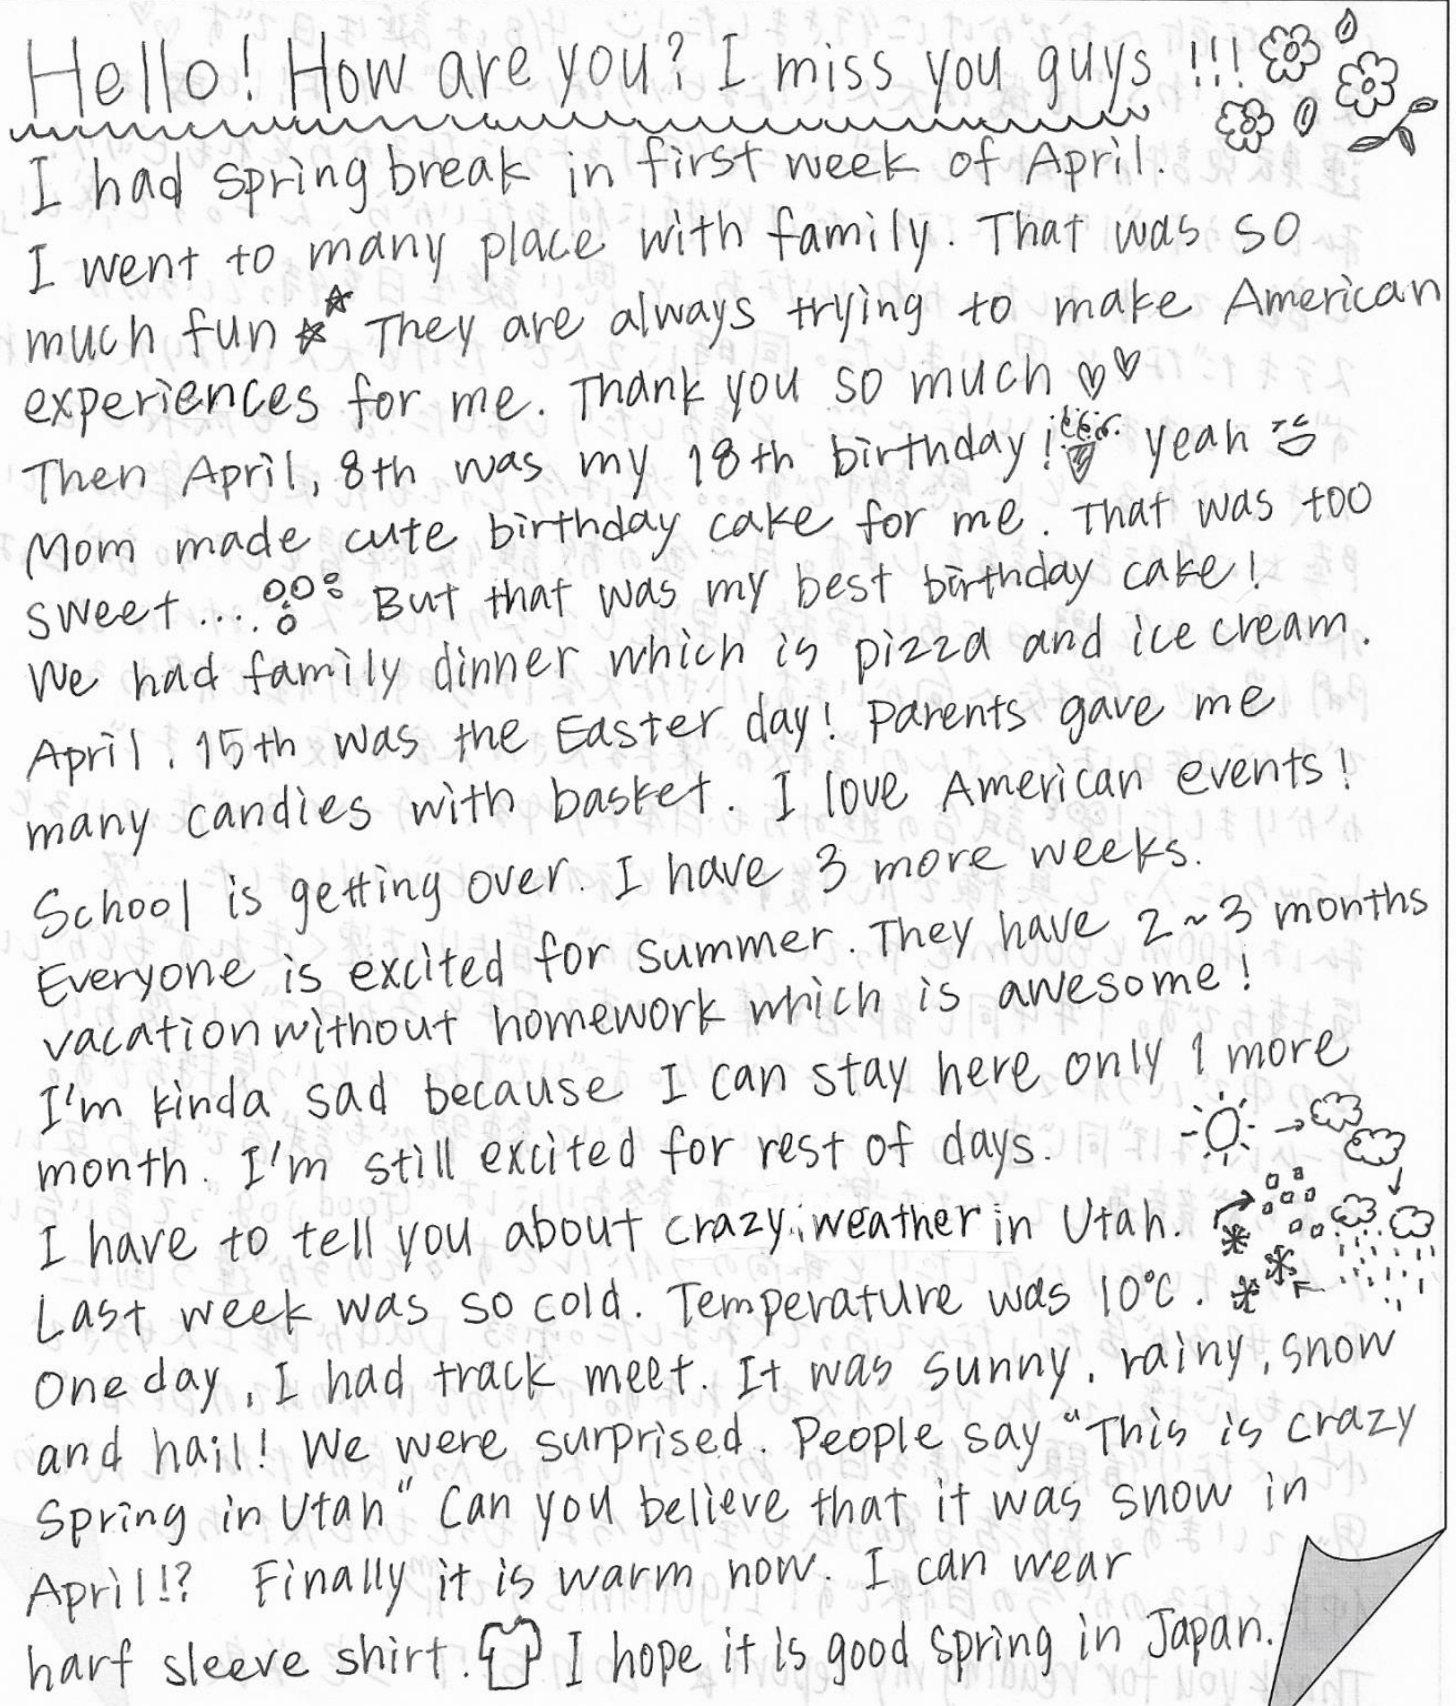 Hello! How are you? I miss you guys !!!
I had spring break in first week of April.
I went to many place with family. That was so
much fun They are always trying to make American
experiences for me. Thank you so much
Then April, 8th was my 18th birthday! yeah
Mom made cute birthday cake for me. That was too
sweet.... But that was my best birthday cake!
We had family dinner which is pizza and ice cream.
April. 15th was the Easter day! Parents gave me
many candies with basket. I love American events!
School is getting over. I have 3 more weeks.
Everyone is excited for summer. They have 2~3 months
vacation without homework which is awesome!
I'm kinda sad because I can stay here only 1 more
month. I'm still excited for rest of days.
I have to tell you about crazy weather in Utah.
Last week was so cold. Temperature was 10°C.
One day, I had track meet. It was sunny, rainy, snow
and hail! We were surprised. People say "This is crazy
spring in Utah" Can you believe that it was snow in
April!? Finally it is warm now. I can wear
harf sleeve shirt. I hope it is good spring in Japan.